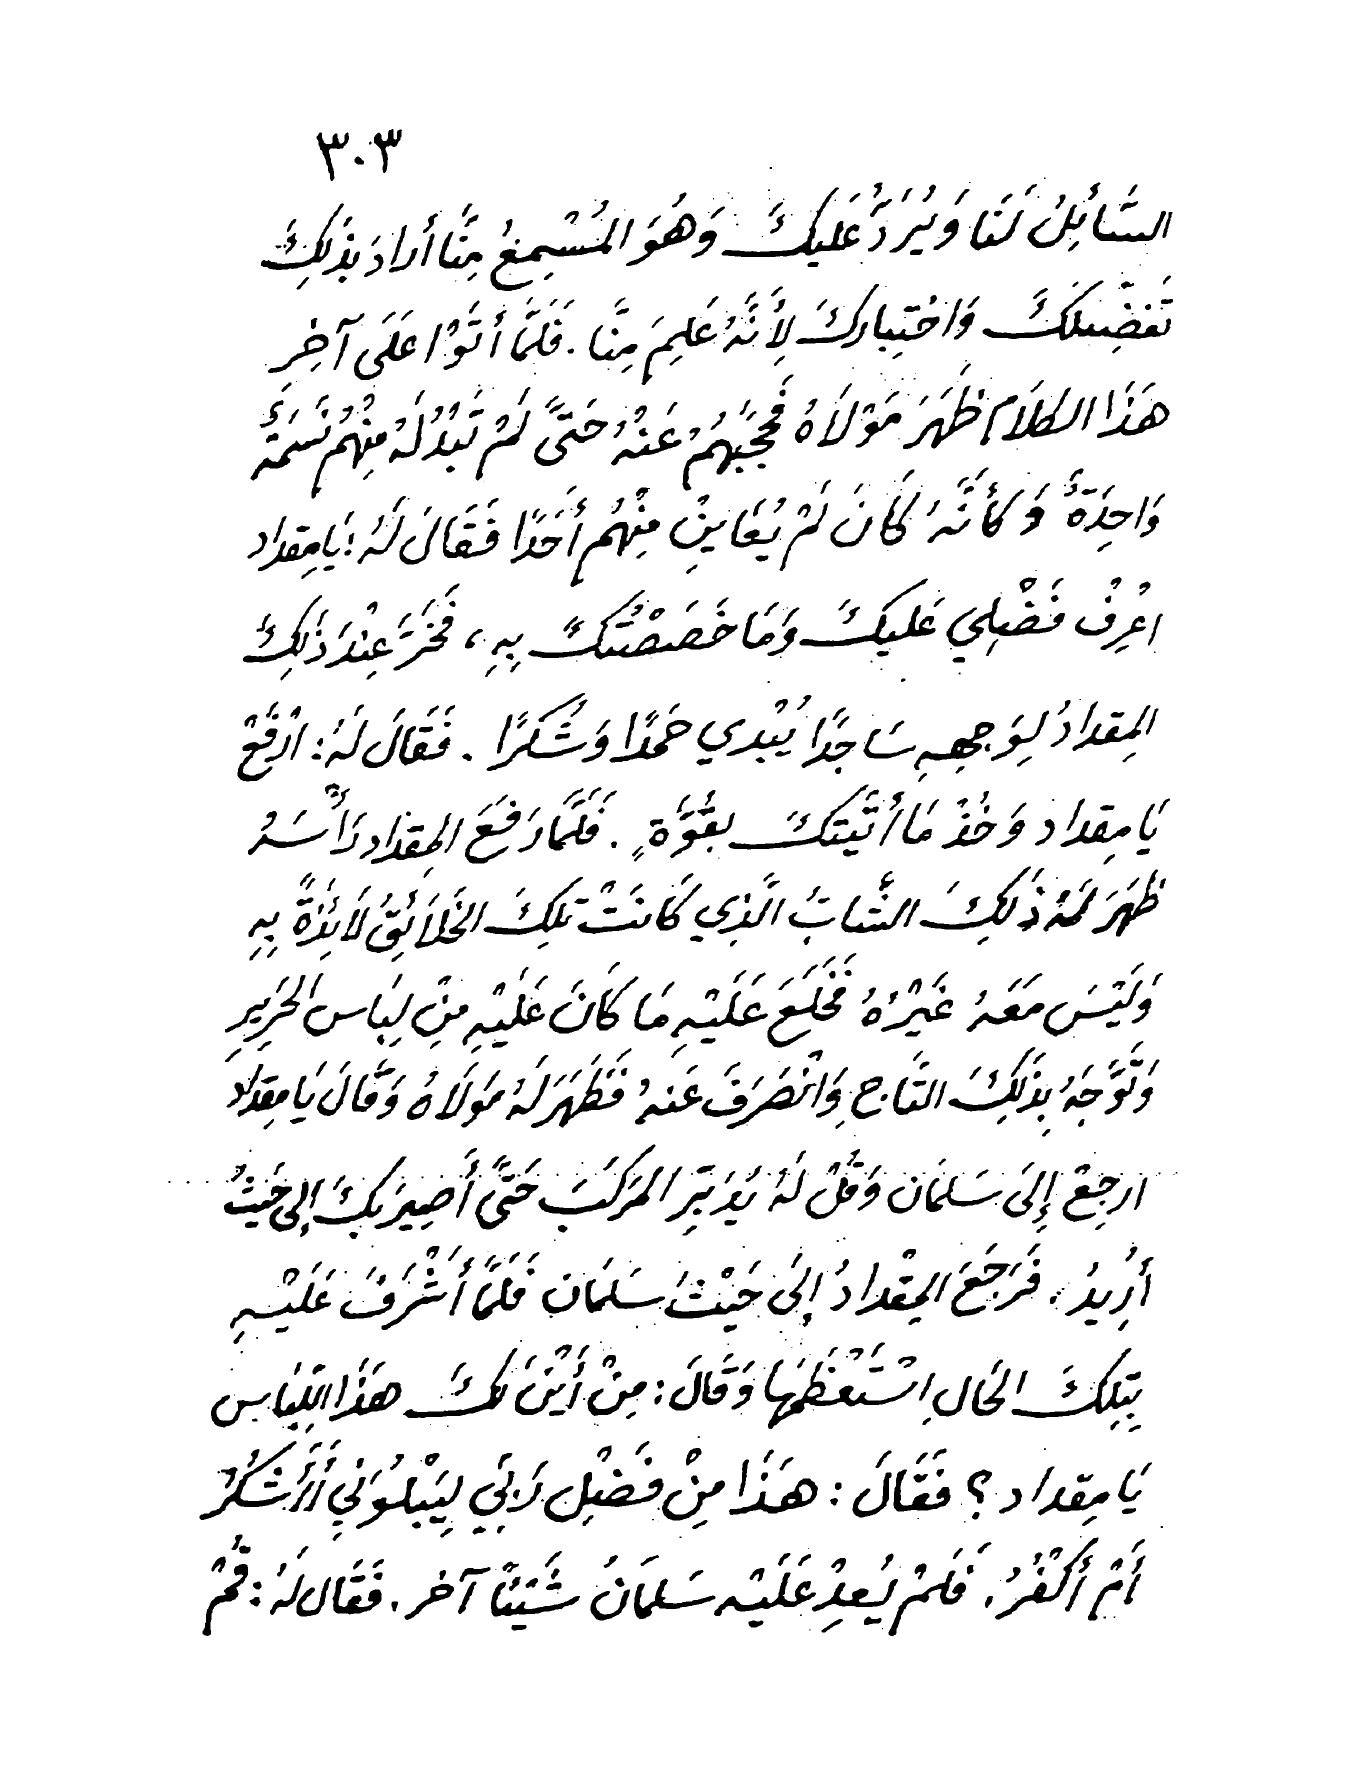 ٣٠٣
السَّائِلُ لَنَا وَيُرَدُّ عَلَيكَ وَهُوَ المُسْمِعُ مِنَّا أرادَ بِذَلِكَ
تَفضِيلَكَ وَاختِبارِكَ لِأَنَّهُ عَلِيمَ مِنَّا . فَلَمَّا أَتَوْا عَلَى آخِرِ
هَذَا الكلَامِ ظَهَرَ مَوْلَاهُ فَحَجَبَهُمْ عَنْهُ حَتَّى لَمْ تَبْدُ لَهُ مِنْهُمْ نَسَمَةٌ
وَاحِدَةٌ وَكَأَنَّهُ كَانَ لَمْ يُعَايِنْ مِنْهُم أَحَدًا فَقَالَ لَهُ : يَا مِقداد
اعْرِفْ فَضْلِي عَلَيكَ وَمَا خَصَصْتُكَ بِهِ ، فَخَرَّ عِنْدَ ذَلِكَ
المِقدادُ لِوَجهِهِ سَاجِدًا يُبْدي حَمْدًا وَشُكرًا . فَقَالَ لَهُ : ارْفَعْ
يَا مِقداد وَخُذْ مَا أَتَيتكَ بِقُوَّةٍ . فَلَمَّا رَفَعَ المِقداد رَأْسَهُ
ظَهَرَ لَهُ ذَلكَ الشَّابُّ الَّذِي كَانَتْ تِلكَ الخَلَائِقُ لَائِذَةً بِهِ
وَلَيْسَ مَعَهُ غَيْرُهُ فَخَلَعَ عَلَيْهِ مَا كَانَ عَلَيْهِ مِنْ لِبَاس الحَرِيرِ
وَتَوَّجَهُ بِذَلِكَ التَّاجِ وَانْصَرَفَ عَنهُ فَظَهَرَ لَهُ مَولَاهُ وَقَالَ يَا مِقدَاد
ارجِعْ إِلَى سَلمَان وَقُلْ لَهُ يُدَبِّر المَركَبَ حَتَّى أَصِيرَ بِكَ إلى حَيثُ
أُرِيدُ . فَرَجَعَ المِقْدادُ إِلَى حَيْثُ سَلمَان فَلَمَّا أَشْرَفَ عَلَيْهِ
بِتِلكَ الحَالِ اسْتَعْظَمَهَا وَقَالَ : مِنْ أَيْنَ لَكَ هَذَا اللِّبَاس
يَا مِقداد ؟ فَقَالَ : هَذَا مِنْ فَضْلِ رَبِّي لِيَبْلُوَنِي أَأَشكُرُ
أَمْ أَكْفُرُ . فَلَمْ يُعِدْ عَلَيْهِ سَلمَانُ شَيْئًا آخر . فَقَال لَهُ : قُمْ